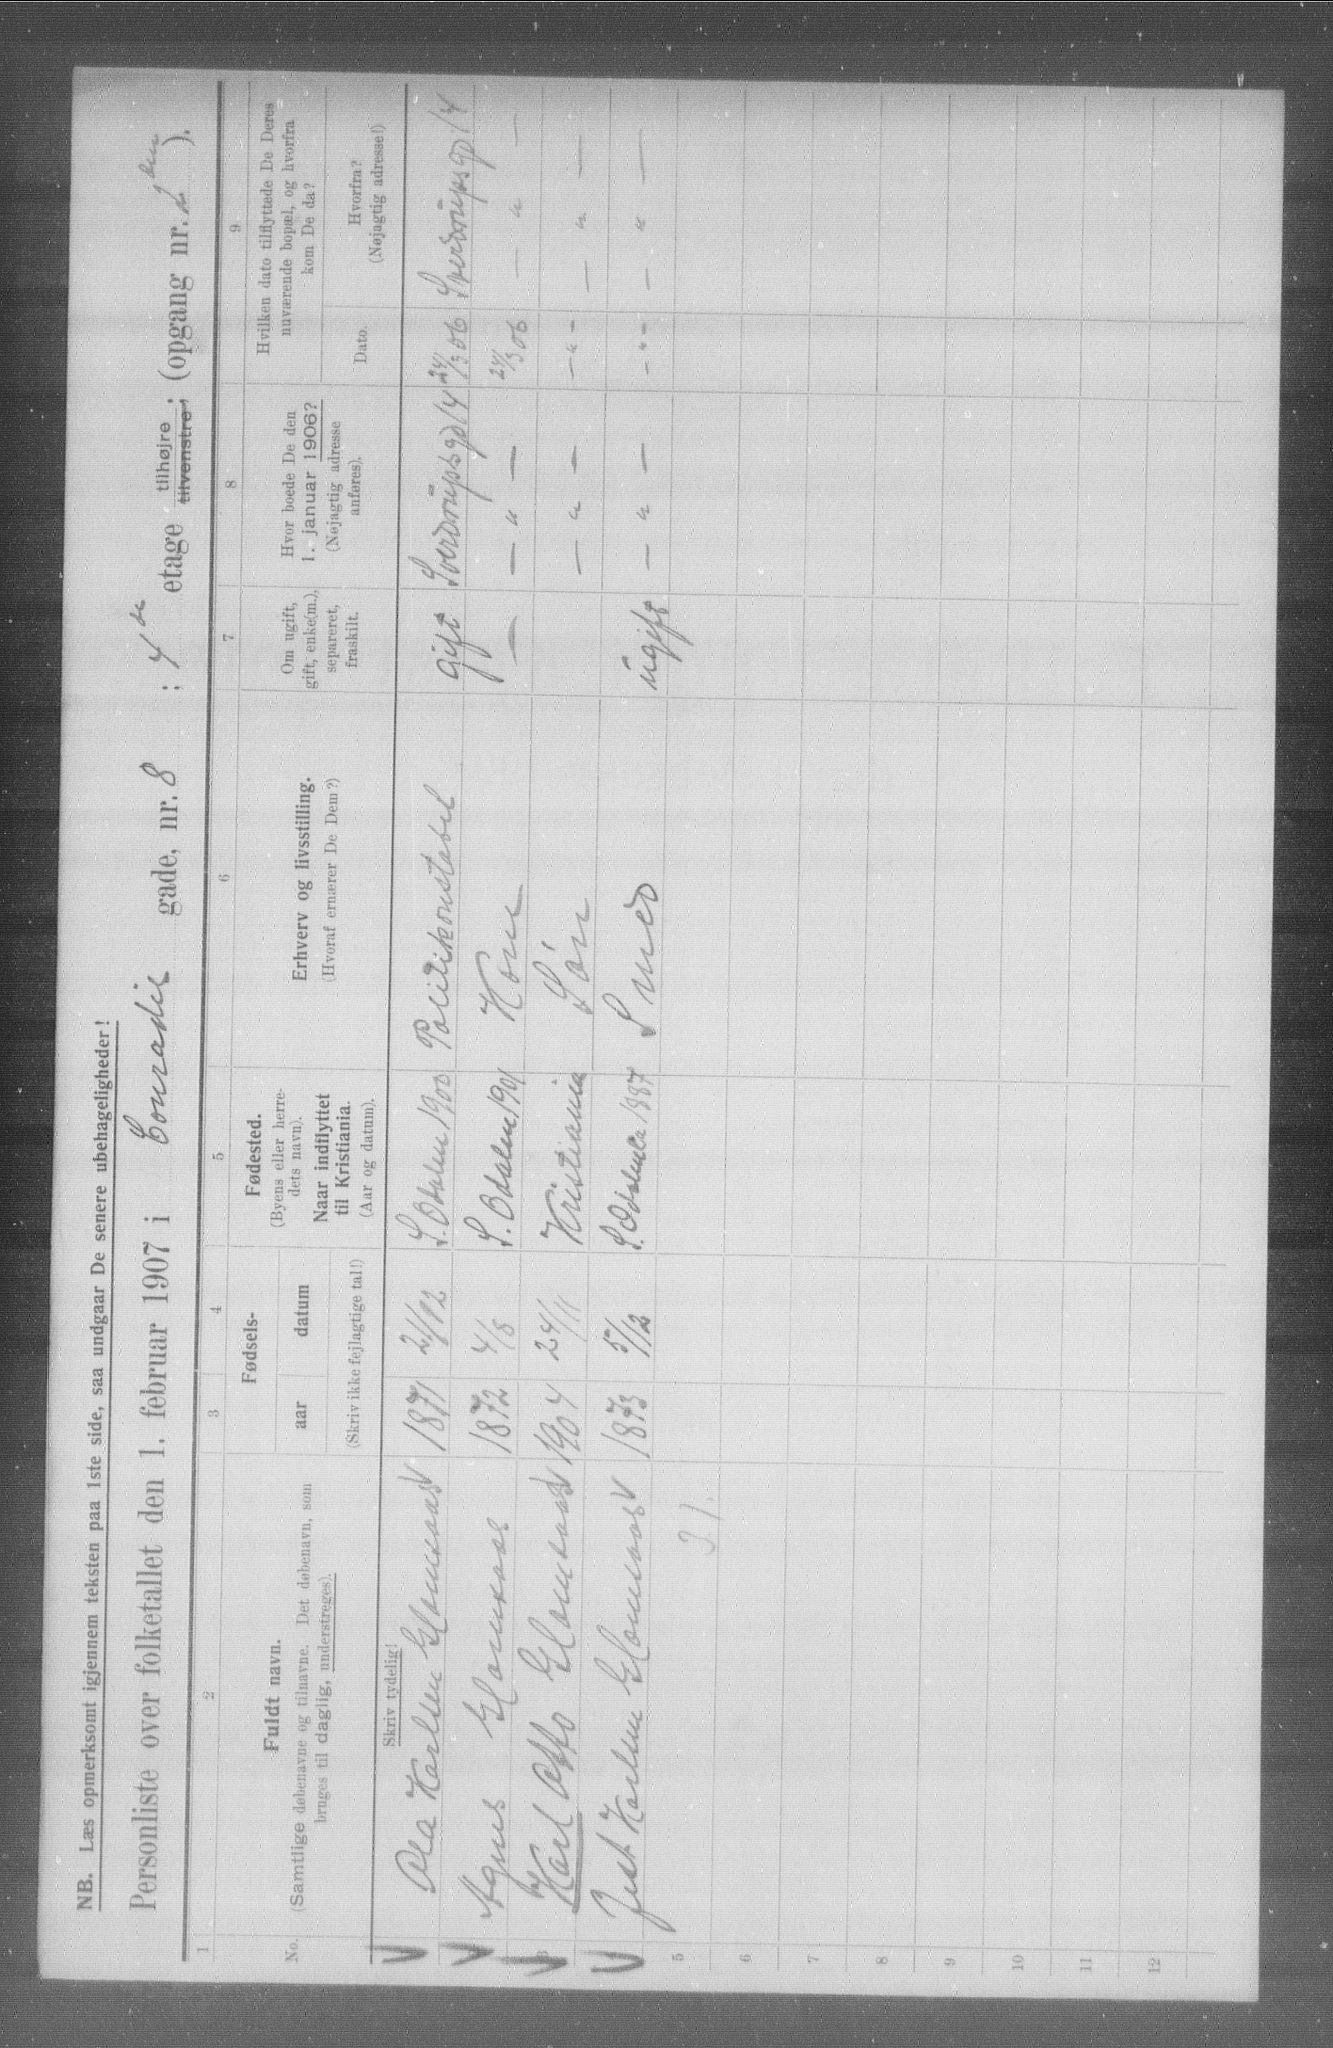 NB. Læs opmerksomt igjennem teksten paa 1ste side, saa undgaar De senere ubehageligheder!
Personliste over folketallet den 1. februar 1907 i Conradis gade, nr. 8 ; 4de etage tilhøjre, tilvenstre, (opgang nr. 2den ).
1 2 3 4 5 6 7 8 9
No.
Fuldt navn.
(Samtlige døbenavne og tilnavne. Det døbenavn, som
bruges til daglig, understreges).
Fødsels-
aar datum
(Skriv ikke fejlagtige tal!)
Fødested.
(Byens eller herre-
dets navn).
Naar indflyttet
til Kristiania.
(Aar og datum).
Erhverv og livsstilling.
(Hvoraf ernærer De Dem?)
Om ugift,
gift, enke(m.),
separeret,
fraskilt.
Hvor boede De den
1. januar 1906?
(Nøjagtig adresse
anføres).
Hvilken dato tilflyttede De Deres
nuværende bopæl, og hvorfra
kom De da?
Dato.
Hvorfra?
(Nøjagtig adresse!)
Skriv tydelig!
Ola Karlsen Glomsaas 1871 21/12 S. Odalen 1900 Politikonstabel gift Sverdrupsgd 14 24/3 06 Sverdrupsgd 14
Agnes Glomsaas 1872 4/8 S. Odalen 1901 Kone — — " — 24/3 06 — " —
3 Karl Otto Glomsaas 1904 24/11 Kristiania Søn — " — — " — — " —
Just Karlsen Glomsaas 1873 5/12 S. Odalen 1887 Smed ugift — " — — " — — " —
3 1.
5
6
7
8
9
10
11
12